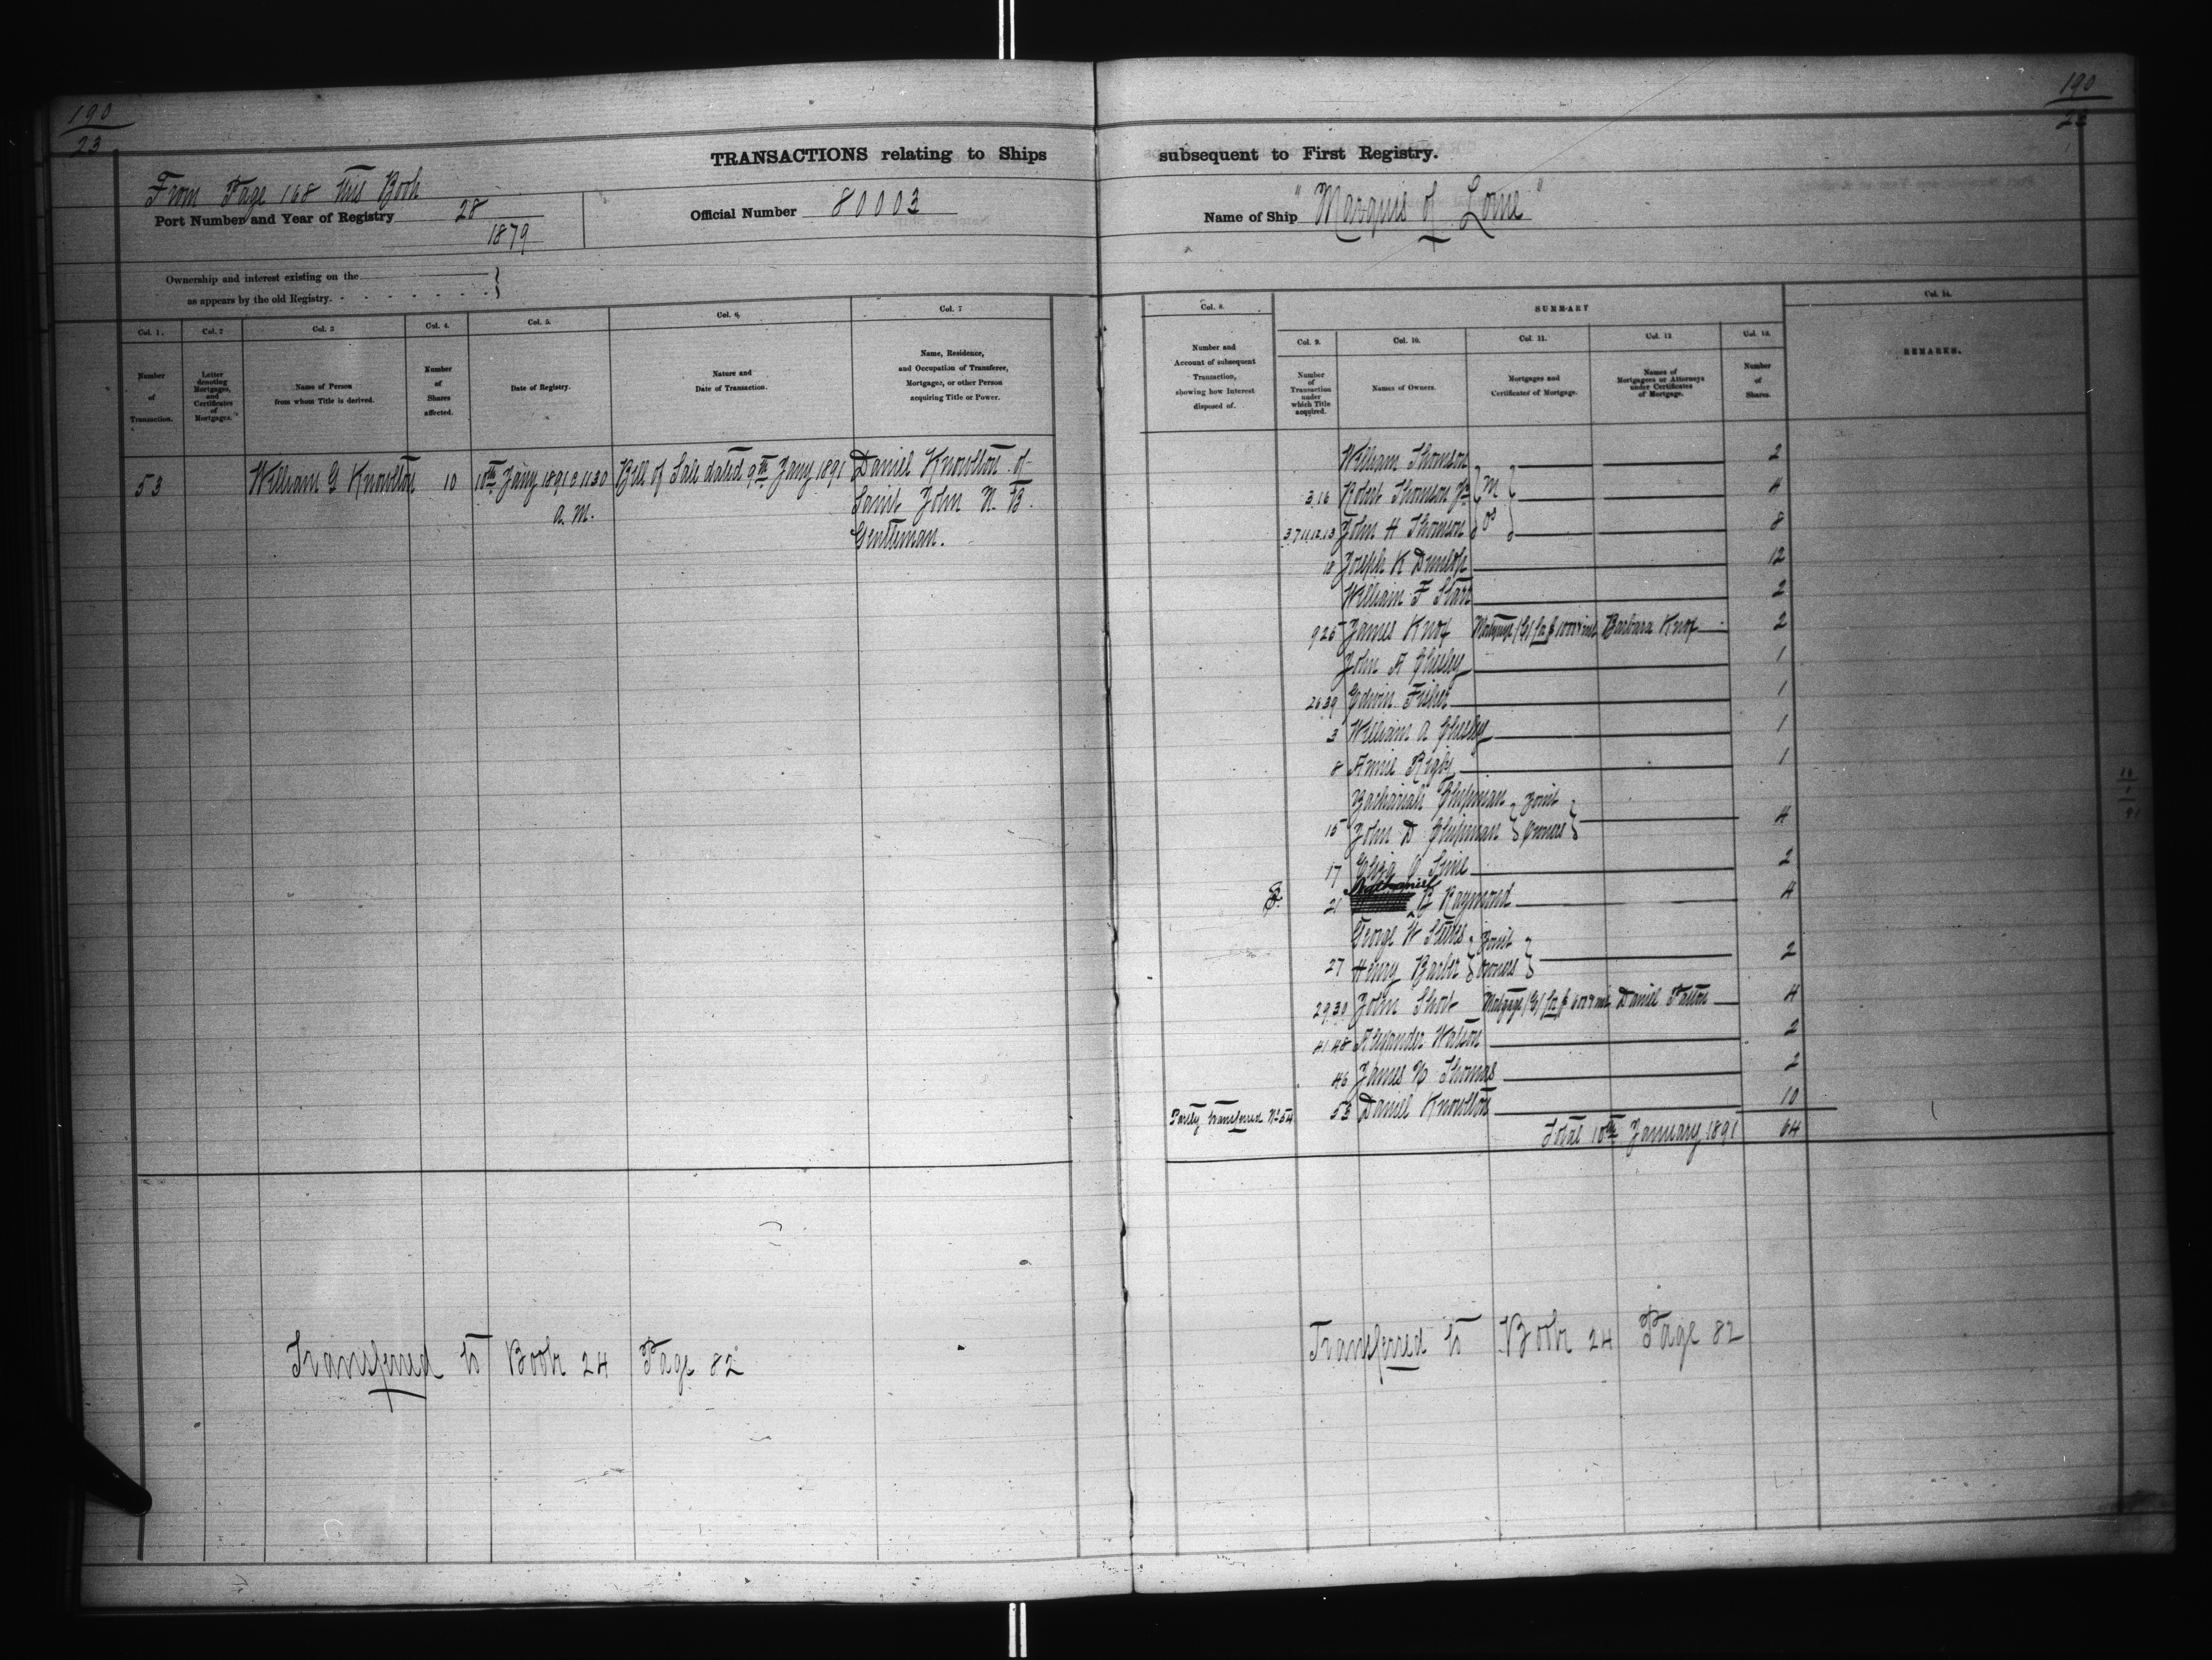 190
23
190
23
TRANSACTIONS relating to Ships subsequent to First Registry.
From Page 168 this Book
Port Number and Year of Registry 28
1879
Official Number 80003
Name of Ship "Marquis of Lorne"
Ownership and interest existing on the
as appears by the old Registry.
Col. 1.
Number
of
Transaction.
Col. 2
Letter
denoting
Mortgages,
and
Certificates
of
Mortgages.
Col. 3
Name of Person
from whom Title is derived.
Col. 4.
Number
of
Shares
affected.
Col. 5.
Date of Registry.
Col. 6.
Nature and
Date of Transaction.
Col. 7
Name, Residence,
and Occupation of Transferee,
Mortgagee, or other Person
acquiring Title or Power.
Col. 8.
Number and
Account of subsequent
Transaction,
showing how Interest
disposed of.
SUMMARY
Col. 9.
Number
of
Transaction
under
which Title
acquired.
Col. 10.
Names of Owners.
Col. 11.
Mortgages and
Certificates of Mortgage.
Col. 12
Names of
Mortgagees or Attorneys
under Certificates
of Mortgage.
Col. 13.
Number
of
Shares.
Col. 14.
REMARKS.
53 William G Knowlton 10 10th Jany 1891 @ 11 30 Bill of Sale dated 9th Jany 1891 Daniel Knowlton of
a.m. Saint John N.B.
Gentleman.
William Thomson 2
3.16 Robert Thomson Jr 4
3.7.11.12.13 John H Thomson 8
18 Joseph K Dunlop 12
William F Starr 2
9 25 James Knox Mortgage Barbara Knox 2
John A Chesley 1
26 39 Edwin Fisher 1
3 William A Chesley 1
8 Annie Rigby 1
Zachariah Chipman Joint
15 John D Chipman Owners 4
17 2
21 Nathaniel B Raymond 4
George W Steeves Joint
27 Henry Barber Owners 2
29.30 John Mortgage Daniel Patton 4
41 48 Alexander Watson 2
46 James Thomas 2
Partly transferred No 54 53 Daniel Knowlton 10
Total 10th January 1891 64
Transferred to Book 24 Page 82
Transferred to Book 24 Page 82